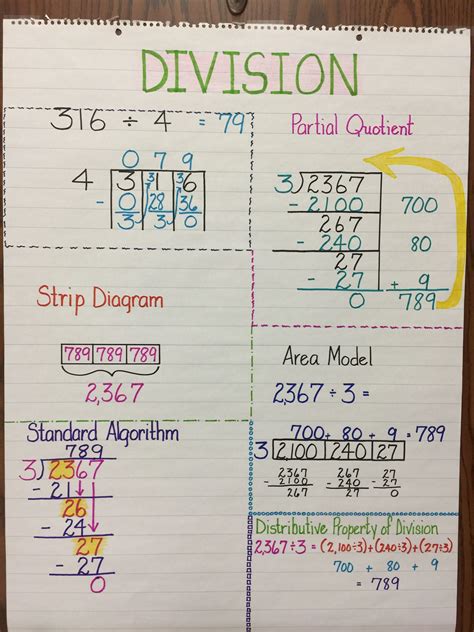 DIVISION
316 ÷ 4 = 79
0 7 9
4 3 31 36
- 0 28 36
3 3 0
Partial Quotient
3)2367
- 2100 700
267
- 240 80
27
- 27 + 9
0 789
Strip Diagram
789 789 789
2,367
Area Model
2,367 ÷ 3 =
700 + 80 + 9 = 789
3 2100 240 27
2367 267 27
- 2100 - 240 - 27
267 27 0
Standard Algorithm
789
3)2367
- 21
26
- 24
27
- 27
0
Distributive Property of Division
2,367÷3 = (2,100÷3)+(240÷3)+(27÷3)
700 + 80 + 9
= 789